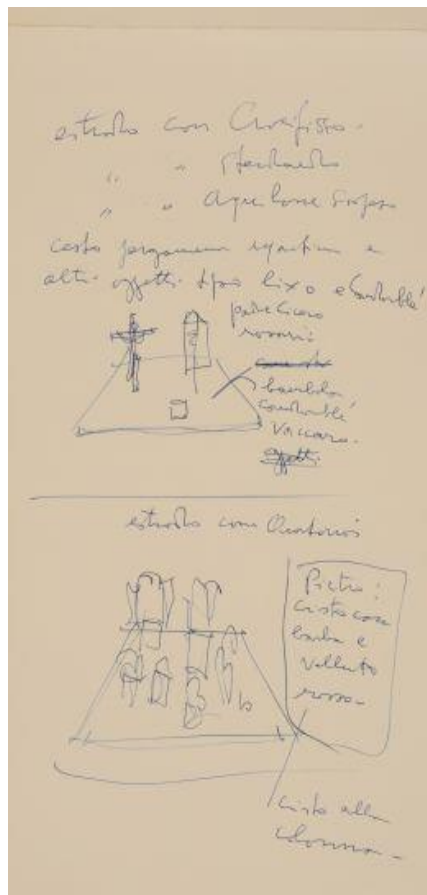 estrado con Crocifisso -
" " Stendardo
" " Aquilone sospeso
cesto
altri oggetti tipo lixo e Candomblé
padre Cicero
rosario
Candomblé
Vaccaro -
oggetti
estrado con Oratorios
Pietro:
cristo con
barba e
velluto
rosso -
cristo alla
colonna -